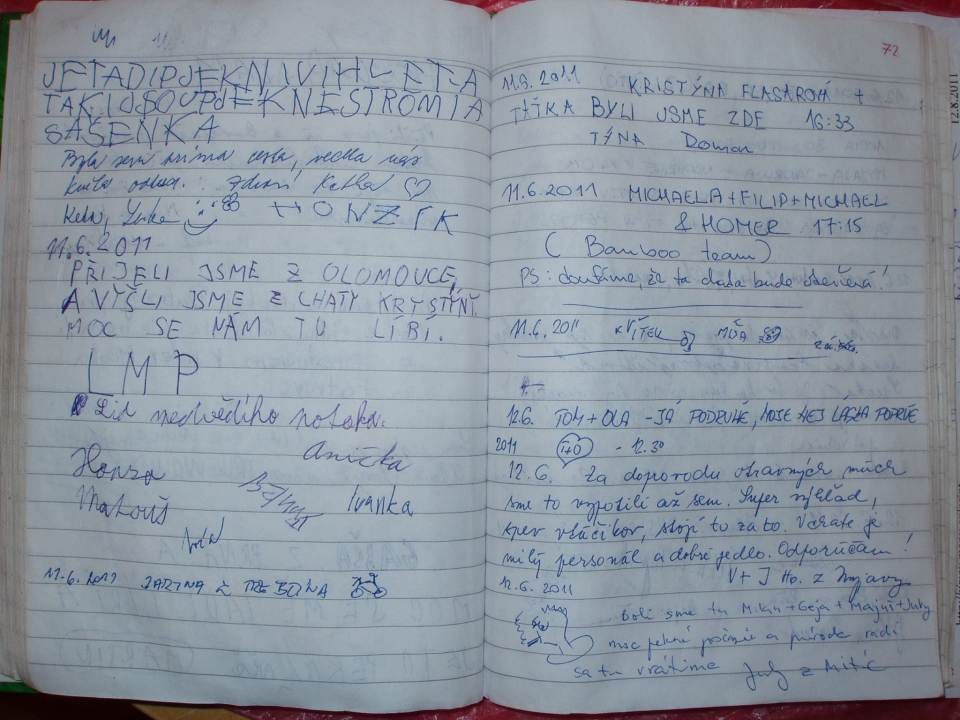 JETADIPJEKNIVIHLETA
TAKIDSOUPJEKNESTROMIA
SAŠENKA
Byla sem prima cesta, vedla nás
Zdraví Katka
HONZÍK
11.6.2011
PŘIJELI JSME Z OLOMOUCE,
A VYŠLI JSME Z CHATY KRYSTÝNI.
MOC SE NÁM TU LÍBÍ.
LMP
Lid medvědího potoka.
Anička
Honza
Ivanka
Matouš
11.6.2011 JARINA Z TŘEBONA
72
11.6.2011 KRISTÝNA FLASAROVÁ +
TAŤKA BYLI JSME ZDE 16:33
TÝNA Roman
11.6.2011 MICHAELA+FILIP+MICHAEL
& HOMER 17:15
(Bamboo team)
PS: doufáme, že ta dada bude otevřená!
11.6.2011 VÍTEK MÚA
12.6. TOM + OLA - JÁ PODRUHÉ, MOJE NEJ LÁSKA POPRVÉ
2011 - 12.30
12.6. Za doprovodu otravných múch
sme to vyšplhili až sem. Super výhľad,
spev vtáčikov, stojí to za to. Vzrate je
milý personál a dobré jedlo. Odporúčam!
V+J Ho. z Myjavy
12.6.2011
Boli sme tu Milan+Geja+Majuš+July
moc pekné počasie a príroda radi
sa tu vrátime July z Mitic